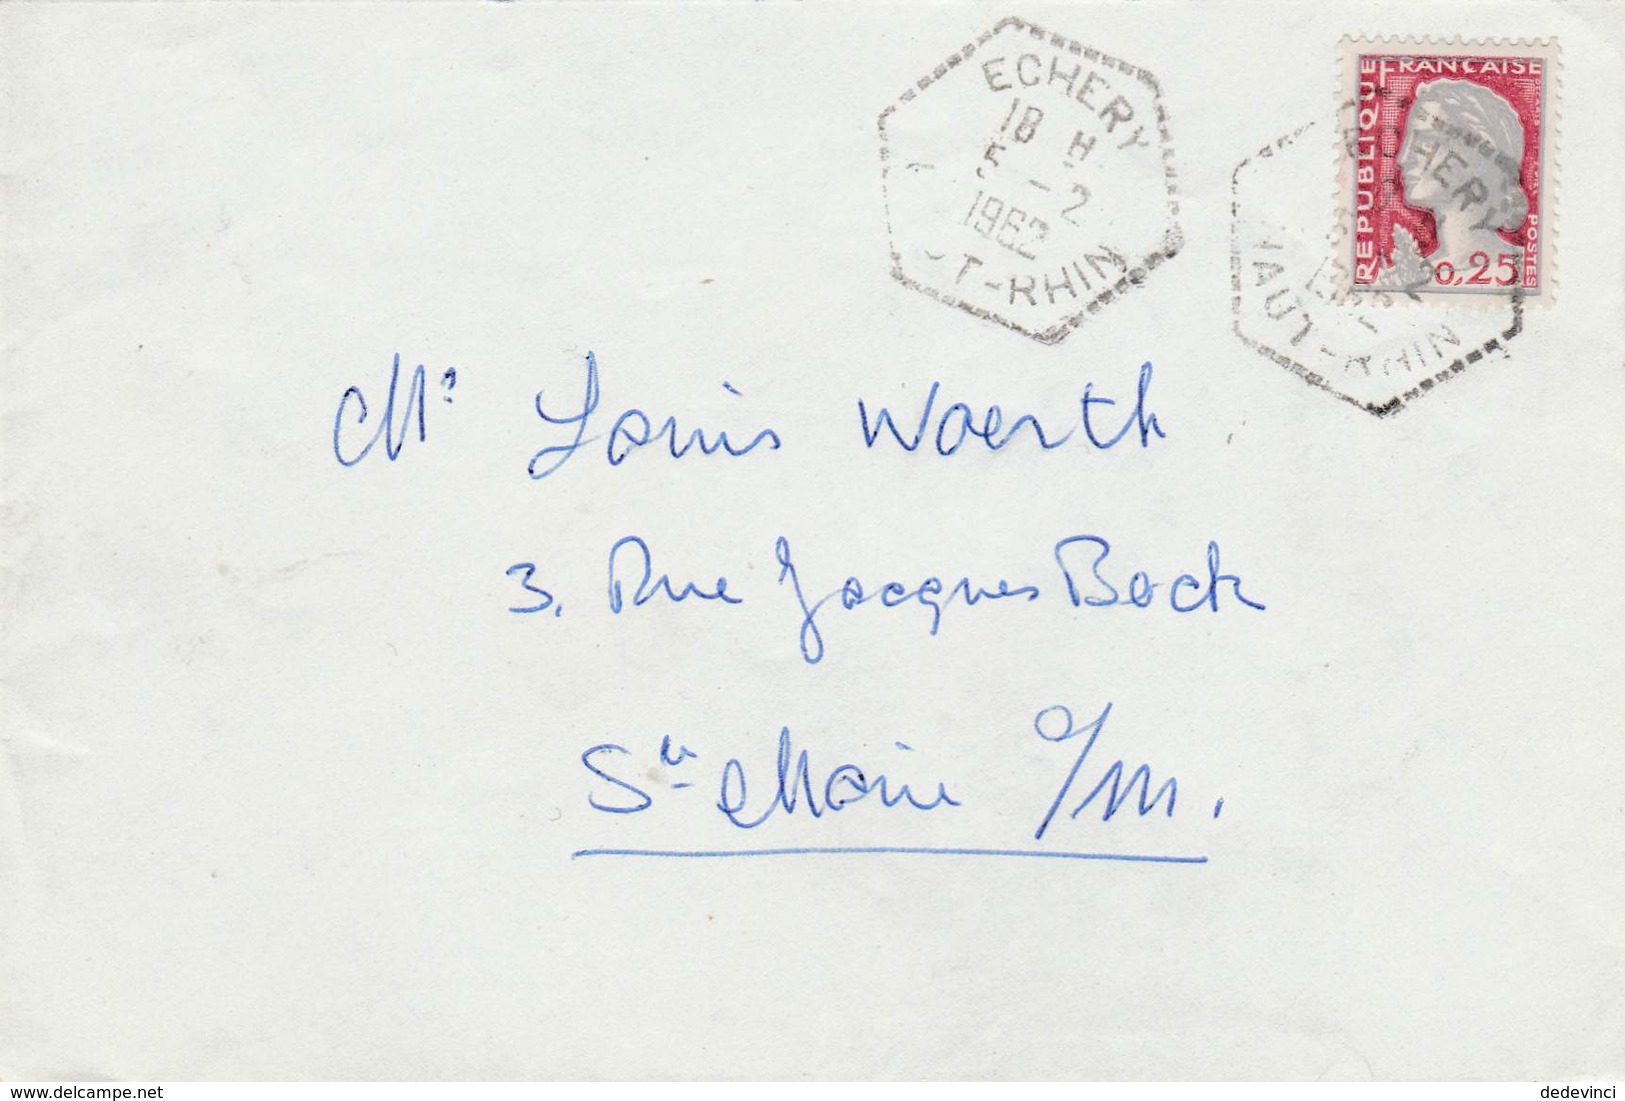 ECHERY
18 H
5 - 2
1962
T-RHIN
RÉPUBLIQUE FRANÇAISE
POSTES
0,25
ECHERY
HAUT-RHIN
Mr Louis Woerth
3. Rue Jacques Bock
Ste Marie a/m.
© delcampe.net
dedevinci